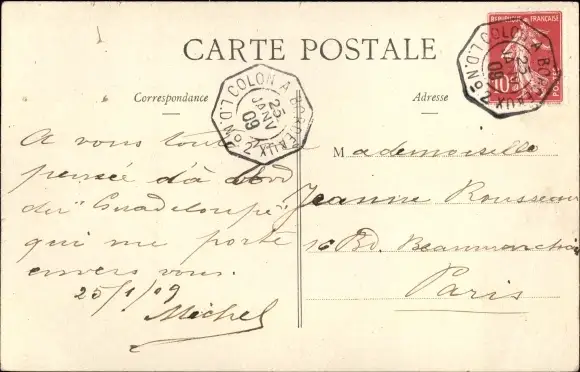 CARTE POSTALE
RÉPUBLIQUE FRANÇAISE
10c
COLON A BORDEAUX
L.D. No 2
25
JANV
09
COLON A BORDEAUX
L.D. No 2
25
09
Correspondance
Adresse
A vous toute
pensée d'à bord
du "Guadeloupe"
qui me porte
envers vous.
25/1/09
Michel
Mademoiselle
Jeanne Rousseau
16 Bd. Beaumarchais
Paris